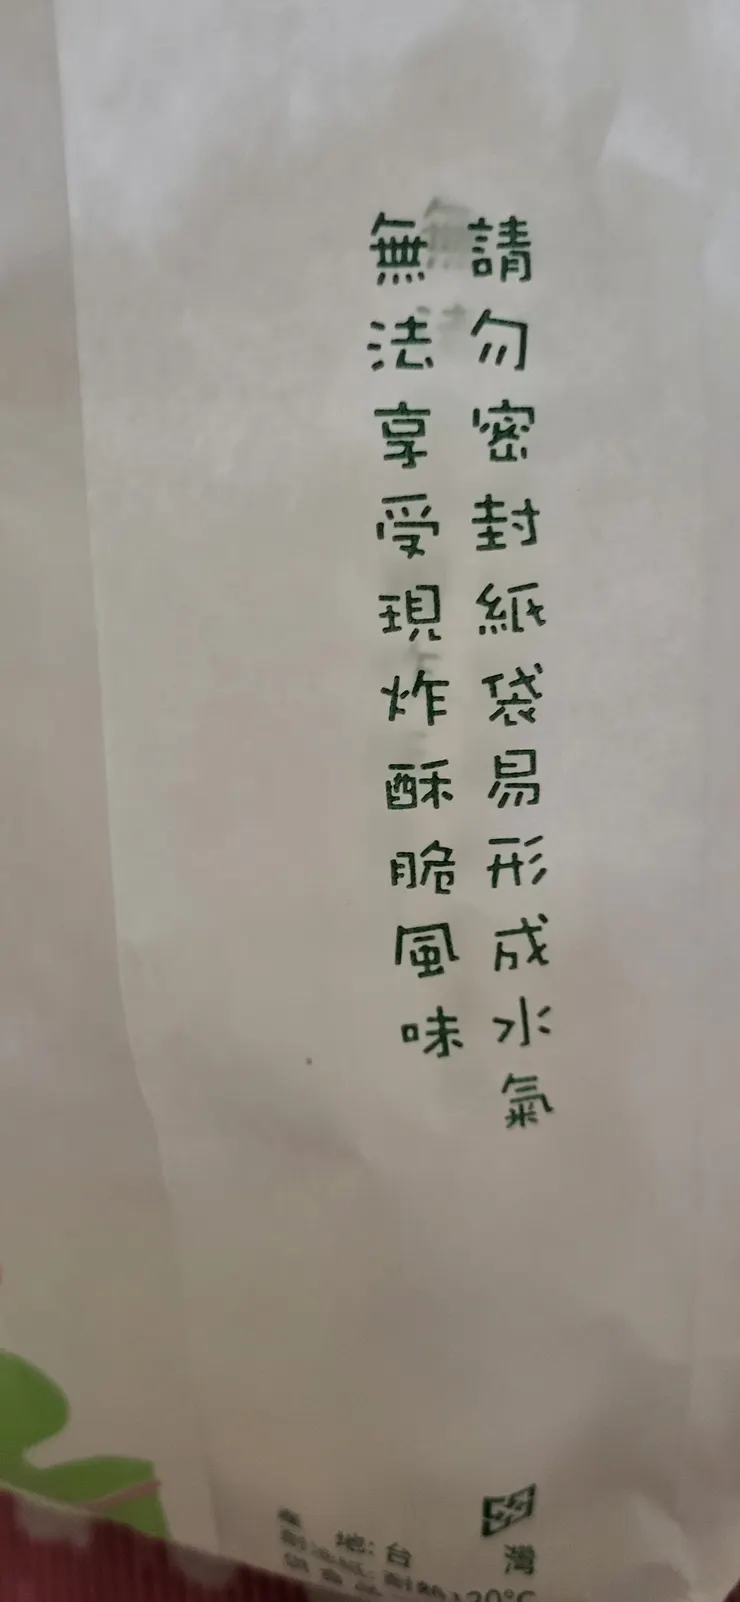 請勿密封紙袋易形成水氣
無法享受現炸酥脆風味
產 地:台 灣
耐油紙:耐熱